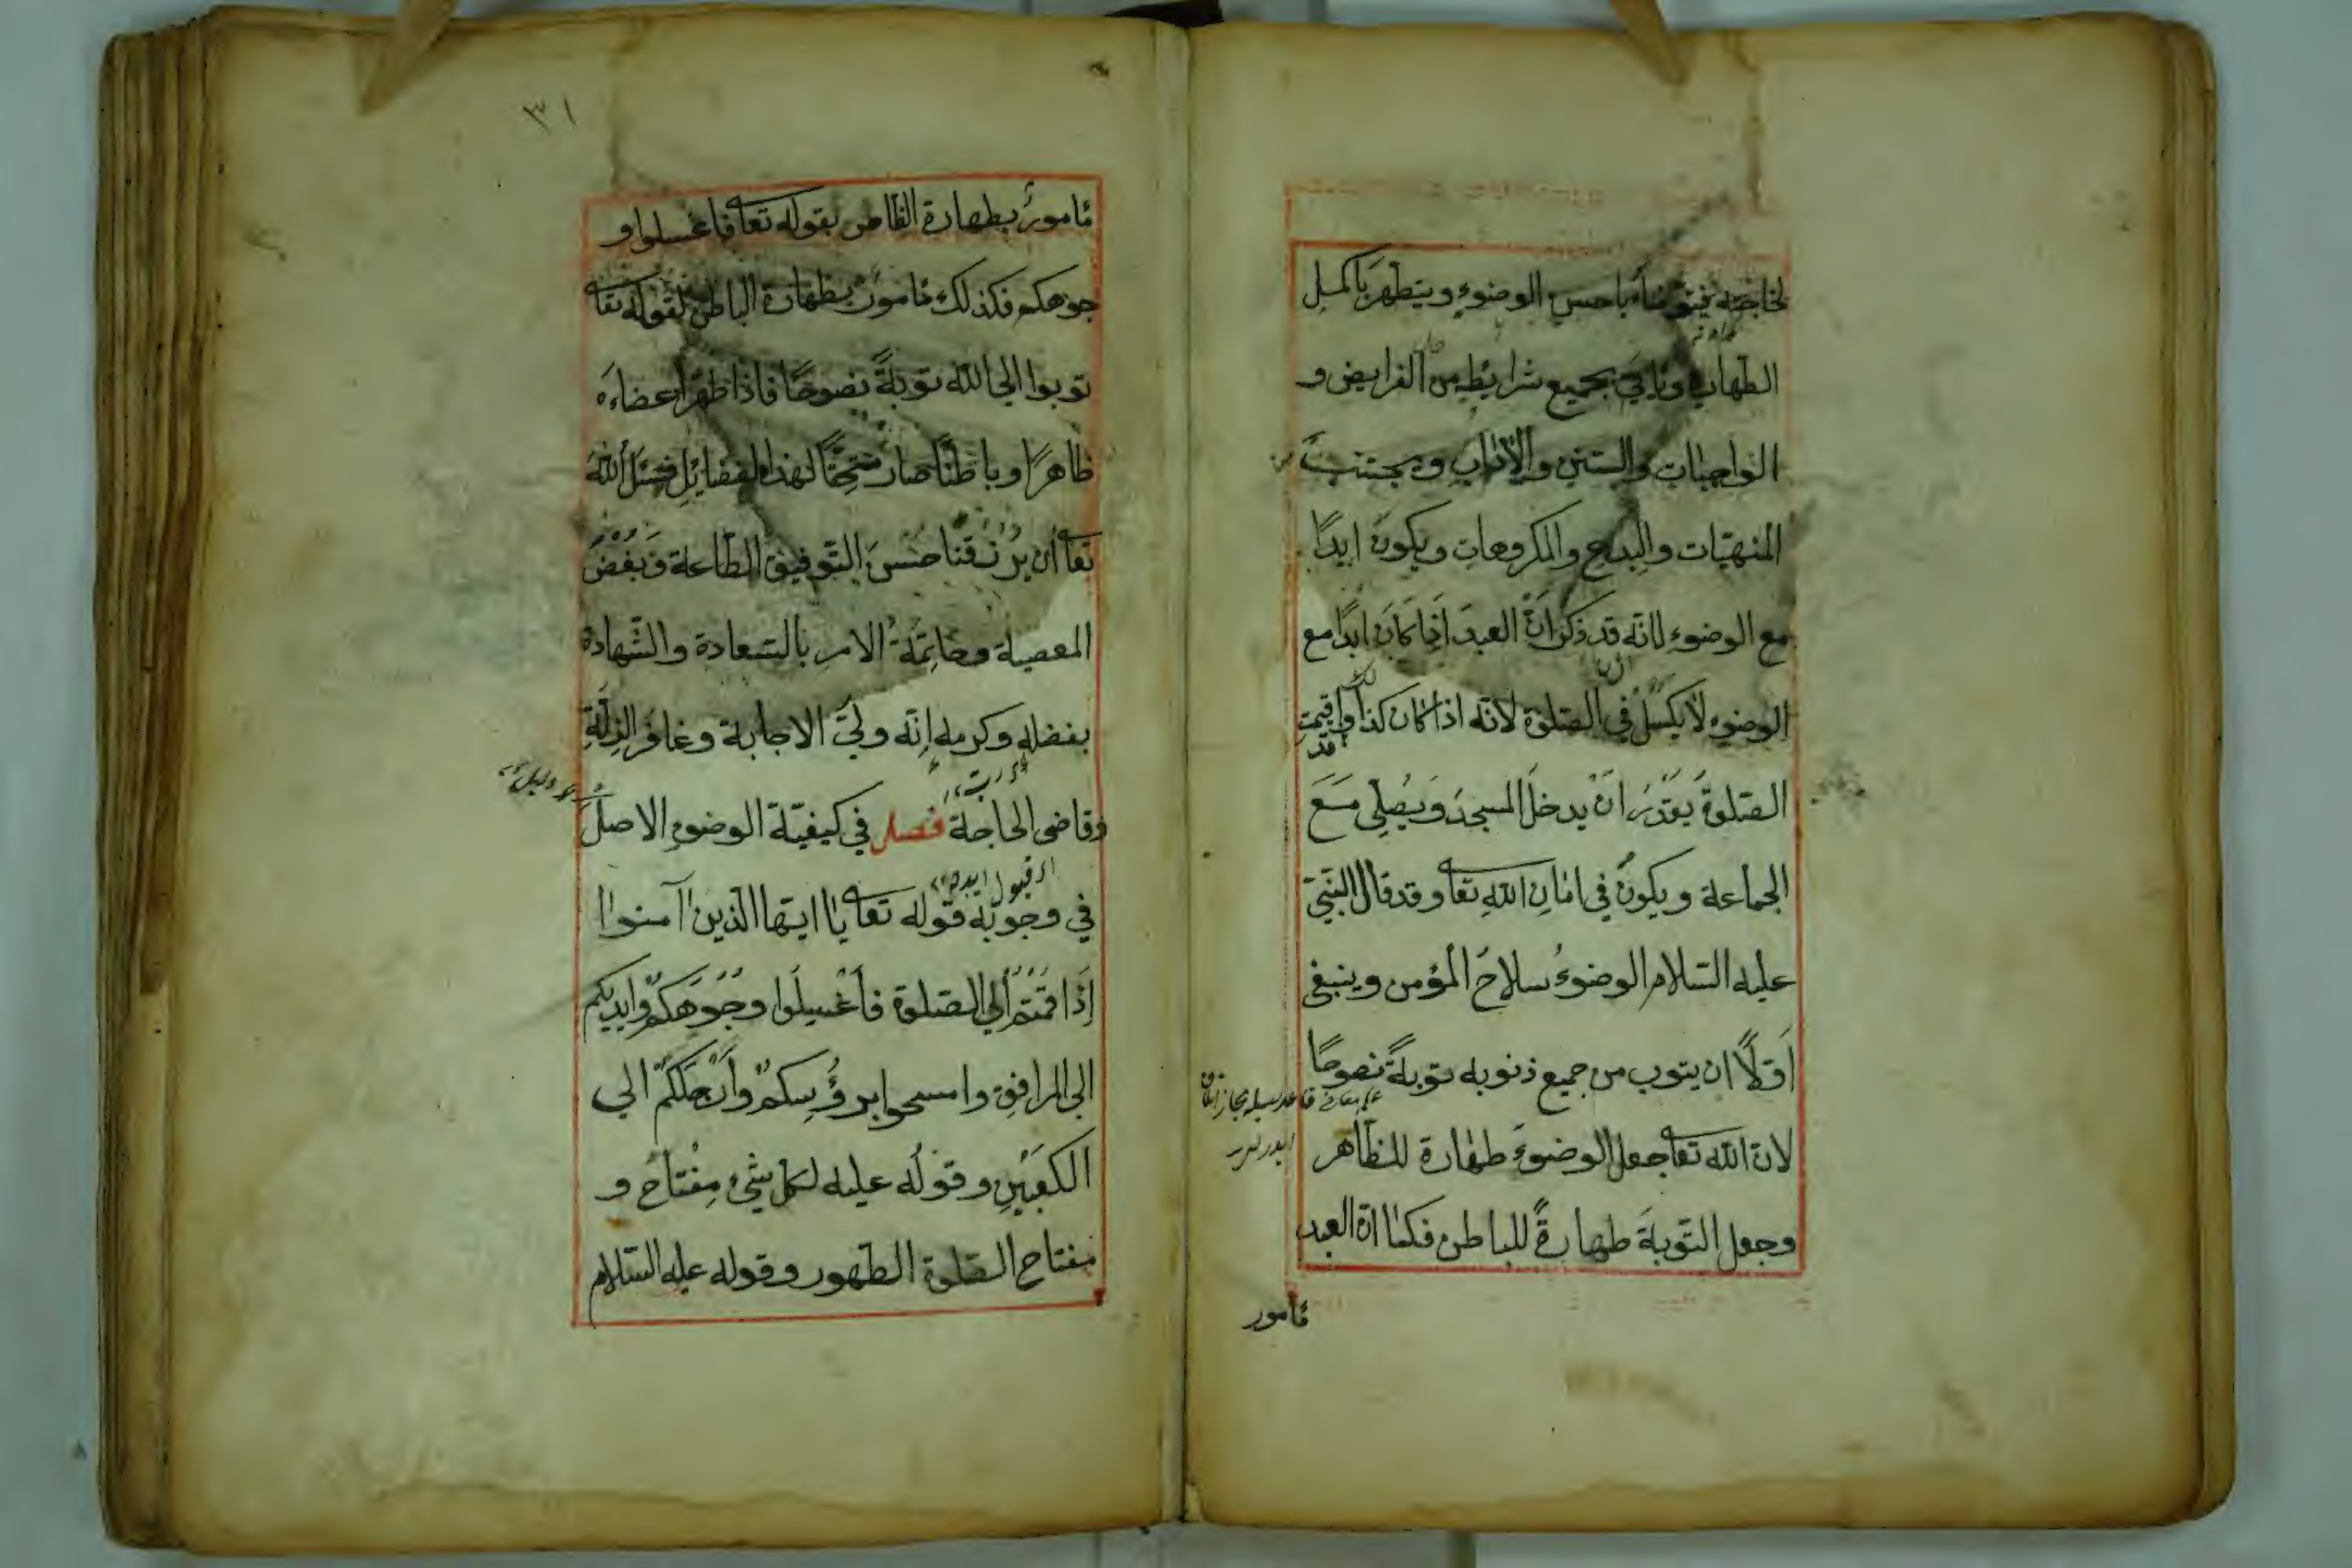 لحاجته فيتوضأ باحسن الوضوء ويتطهر باكمل
الطهارة ويأتي بجميع شرايطه من الفرايض و
الواجبات والسنن والآداب ويجتنب
المنهيات والبدع والمكروهات ويكون ابدًا
مع الوضوء لانه قد ذكر انّ العبد اذا كان ابدًا مع
الوضوء لا يكسل في الصلوة لانه اذا كان كذا واقيمت
قد
الصلوة يقدر ان يدخل المسجد ويصلي مع
الجماعة ويكون في امان الله تعا وقد قال النبي
عليه السلام الوضوءُ سلاحَ المؤمن وينبغي
اوّلًا ان يتوب من جميع ذنوبه توبةً نصوحًا
لان الله تعا جعل الوضوءَ طهارة للظاهر
وجعل التوبةَ طهارةً للباطن فكما ان العبد
مأمور
٣١
مأمورٌ بطهارة الظاهر بقوله تعا فاغسلوا و
جوهكم فكذلك مأمورٌ بطهارة الباطن لقوله تعا
توبوا الى الله توبةً نصوحًا فاذا طهر اعضاءه
ظاهرًا وباطنًا صار مستحقًا لهذا الفضايل فنسئل الله
تعا أن يرزقنا حسن التوفيق الطاعة وبغض
المعصية وخاتمةُ الامر بالسعادة والشهادة
بفضله وكرمه إنّه وليّ الاجابة وغافر الزلّةِ
وقاضى الحاجة فصل في كيفية الوضوءِ الاصلُ
في وجوبه قوله تعا يا ايها الذين آمنوا
إذا قمتم الي الصلوة فاغسلوا وجوهكم وايديكم
الى المرافق وامسحوا برؤسكم وأرجلكم الي
الكعبين وقوله عليه لكل شئ مفتاح و
مفتاح الصلوة الطهور وقوله عليه السلام